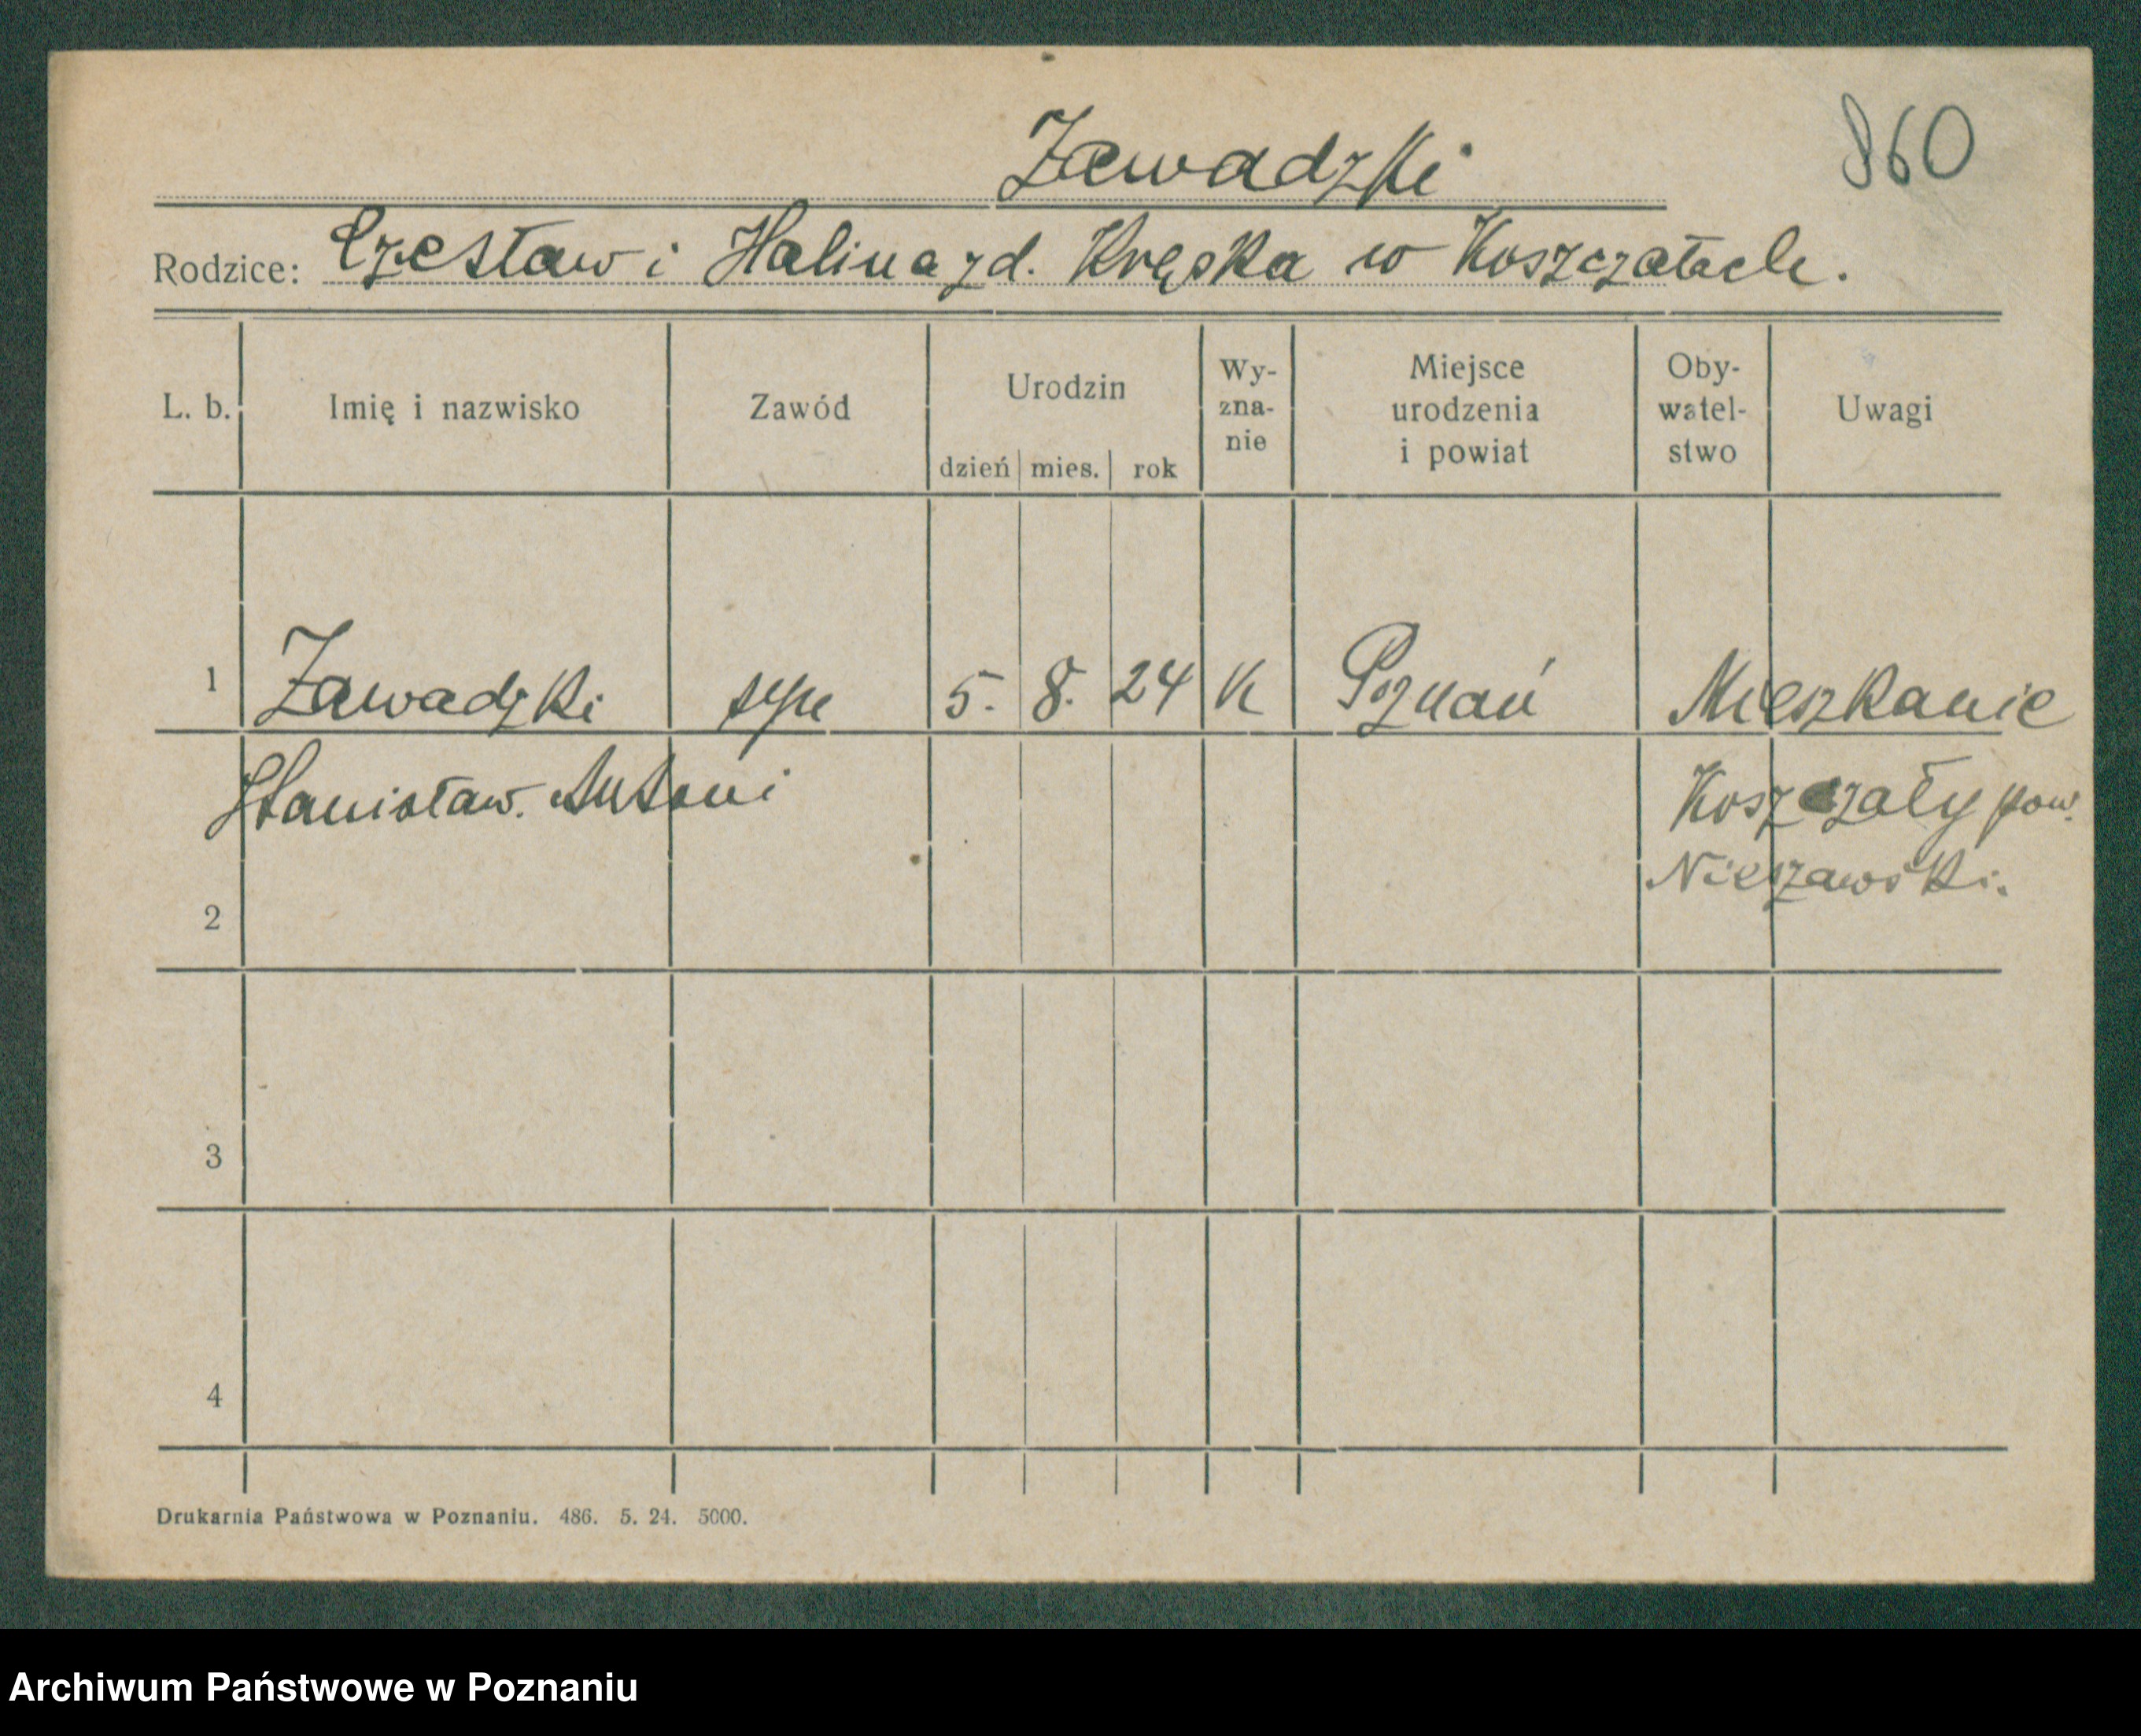 860
Zawadzki
Rodzice: Czesław i Halina zd. Kręska w Koszczałach.
L. b. Imię i nazwisko Zawód Urodzin dzień mies. rok Wy-zna-nie Miejsce urodzenia i powiat Oby-watel-stwo Uwagi
1 Zawadzki syn 5. 8. 24 K Poznań Mieszkanie
Stanisław. Antoni Koszczały pow.
Nieszawski.
2
3
4
Drukarnia Państwowa w Poznaniu. 486. 5. 24. 5000.
Archiwum Państwowe w Poznaniu